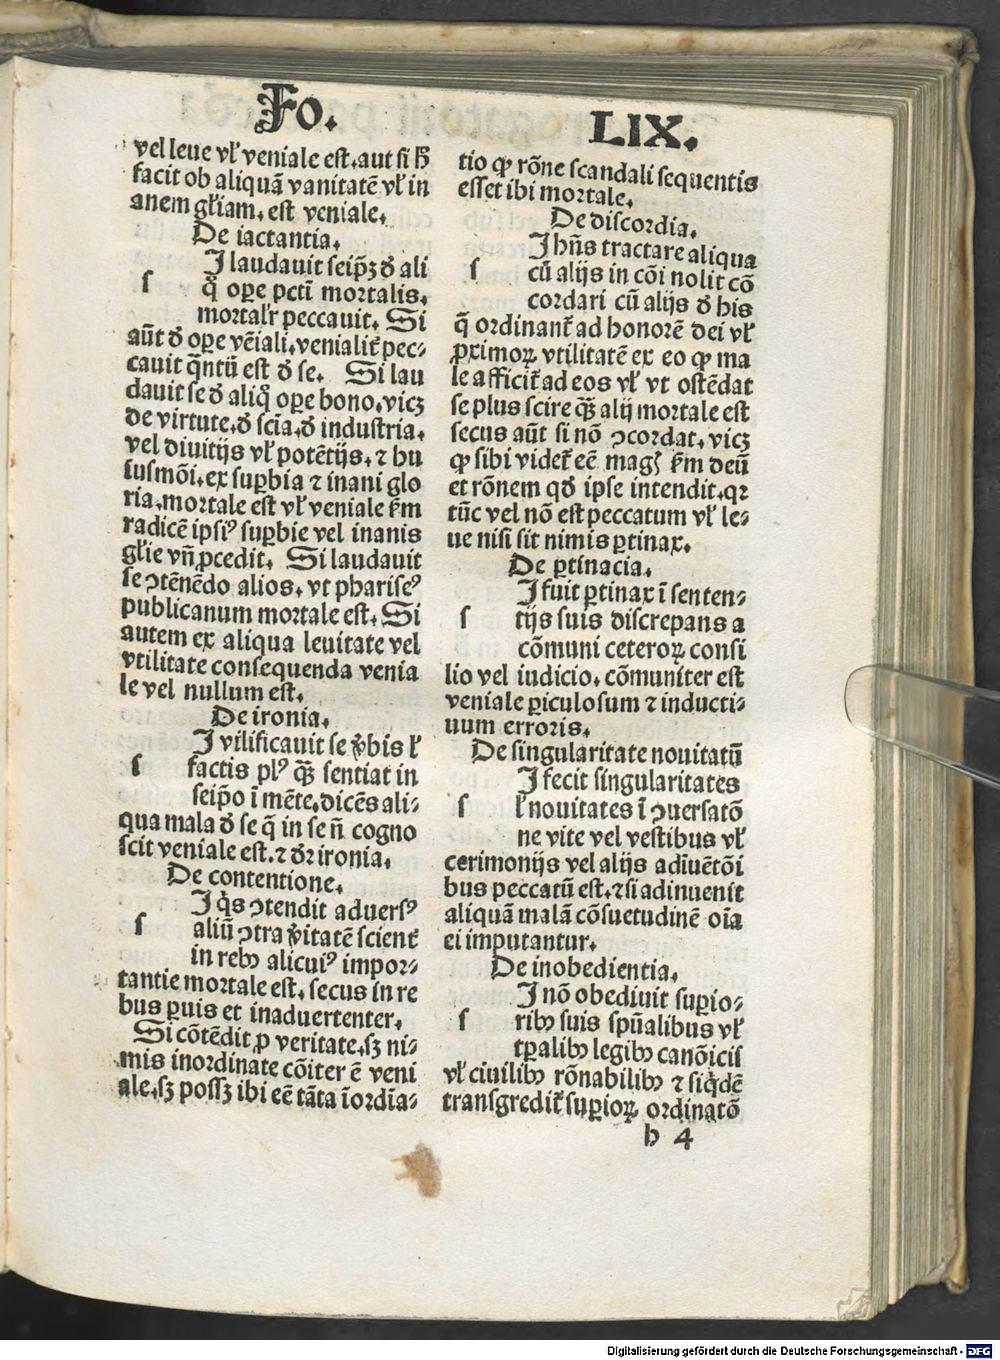 Fo.
LIX.
vel leue vl̕ veniale est. aut si ħ
facit ob aliquā vanitatē vl̕ in
anem gl̕iam. est veniale.
De iactantia.
I laudauit seip̄ꝫ đ ali
s q̊ oꝑe pctī mortalis.
mortalr̕ peccauit. Si
aūt đ oꝑe vēiali. venialit̕ pec⸗
cauit q̄ntū est đ se. Si lau
dauit se đ aliq̊ oꝑe bono. vicꝫ
de virtute. đ scīa. đ industria.
vel diuitijs vl̕ potētijs. ⁊ hu
iusmōi. ex suꝑbia ⁊ inani glo
ria. mortale est vl̕ veniale s̄m
radicē ipsiꝰ suꝑbie vel inanis
gl̕ie vn̄ ꝓcedit. Si laudauit
se ↄtēnēdo alios. vt phariseꝰ
publicanum mortale est. Si
autem ex aliqua leuitate vel
vtilitate consequenda venia
le vel nullum est.
De ironia.
I vilificauit se v̕bis l̕
s factis plꝰ qꝫ̄ sentiat in
seip̄o ī mēte. dicēs ali⸗
qua mala đ se q̄ in se n̄ cogno
scit veniale est. ⁊ dr̄ ironia.
De contentione.
I q̇s ↄtendit aduersꝰ
s aliū ↄtra v̕itatē scient̕
in rebꝰ alicuiꝰ impor⸗
tantie mortale est. secus in re
bus ꝑuis et inaduertenter.
Si cōtēdit ꝓ veritate. sꝫ ni⸗
mis inordinate cōiter ē veni
ale. sꝫ possꝫ ibi eē tāta īordīa⸗
tio ꝙ rōne scandali sequentis
esset ibi mortale.
De discordia.
I hn̄s tractare aliqua
s cū alijs in cōi nolit cō
cordari cū alijs đ his
q̄ ordinant̕ ad honorē dei vl̕
ꝓximoꝝ vtilitatē ex eo ꝙ ma
le afficit̕ ad eos vl̕ vt ostēdat
se plus scire qꝫ̄ alij mortale est
secus aūt si nō ↄcordat. vicꝫ
ꝙ sibi videt̕ eē magꝭ s̄m deū
et rōnem qđ ipse intendit. qꝛ
tūc vel nō est peccatum vl̕ le⸗
ue nisi sit nimis ꝑtinax.
De ꝑtinacia.
I fuit ꝑtinax ī senten⸗
s tijs suis discrepans a
cōmuni ceteroꝝ consi
lio vel iudicio. cōmuniter est
veniale ꝑiculosum ⁊ inducti⸗
uum erroris.
De singularitate nouitatū
I fecit singularitates
s l̕ nouitates ī ↄuersatō
ne vite vel vestibus vl̕
cerimonijs vel alijs adiuētōi
bus peccatū est. ⁊ si adinuenit
aliquā malā cōsuetudinē oīa
ei imputantur.
De inobedientia.
I nō obediuit suꝑio⸗
s ribꝰ suis spūalibus vl̕
tꝑalibꝰ legibꝰ canōicis
vl̕ ciuilibꝰ rōnabilibꝰ ⁊ siq̇dē
transgredit̕ suꝑioꝝ ordinatō
h 4
Digitalisierung gefördert durch die Deutsche Forschungsgemeinschaft - DFG